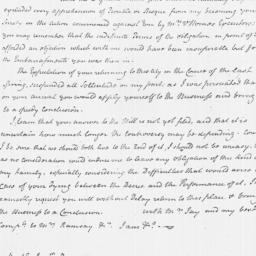 expected every apprehension of Trouble or Risque from my becoming your
Surety in the action commenced against You by Mr. Thomas
you may remember that the indefinite Terms of the obligation in point of
afforded an objection which with me would have been insuperable but for
the Embarrassments you was in.
The Expectation of your returning to this City in the Course of the last
Spring, suspended all Sollicitude on my part, as I was persuaded that
on your arrival you would apply yourself to the Business and bring
to a speedy conclusion.
I learn that your answer to the Bill is not yet filed, and that it is
uncertain how much longer the controversy may be depending. Could
I be sure that we should both live to the End of it, I should not be uneasy.
as no consideration would induce me to leave any obligation of this kind
my family, especially considering the Difficulties that would arise in
Case of your dying between the Decree and the Performance of it, I
earnestly request you will without Delay return to this place & bring
the Business to a Conclusion. with Mrs. Jay and my best
Compts. to Mrs. Ramsay &c. I am &c.